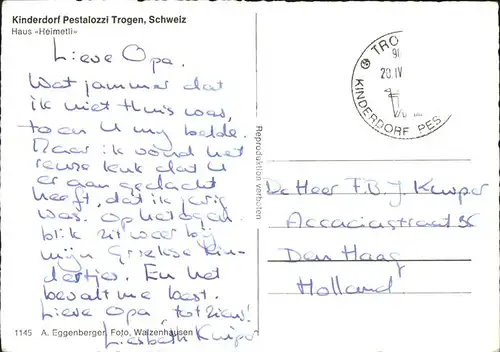 Kinderdorf Pestalozzi Trogen, Schweiz
Haus «Heimetli»
Lieve Opa.
Wat jammer dat
ik niet thuis was,
toen U my belde.
Maar ik vond het
reuze leuk dat U
er aan gedacht
heeft, dat ik jarig
was. Op het ogen-
blik zit weer bij
mijn Griekse kin-
dertjes. En het
bevalt me best.
Lieve Opa, tot ziens!
Liesbeth Kuiper
1145 A. Eggenberger, Foto, Walzenhausen
Reproduktion verboten
TRO
20. IV
KINDERDORF PES
De Heer F.B.J. Kuiper
Accaciastraat
Den Haag
Holland